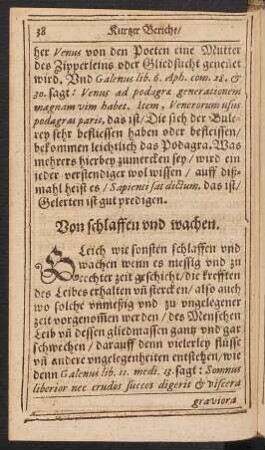 38 Kurtzer Bericht/
her Venus von den Poeten eine Mutter
des Zipperleins oder Gliedsucht geneñet
wird. Vnd Galenus lib. 6. Aph. com. 28. &
30. sagt: Venus ad podagræ generationem
magnam vim habet. Item, Venerorum usus
podagras parit, das ist/ Die sich der Bule-
rey sehr befliessen haben oder befleissen/
bekommen leichtlich das Podagra. Was
mehrers hierbey zumercken sey/ wird ein
jeder verstendiger wol wissen / auff diß-
mahl heist es / Sapienti sat dictum. das ist/
Gelerten ist gut predigen.
Von schlaffen vnd wachen.
Gleich wie sonsten schlaffen vnd
wachen wenn es messig vnd zu
rechter zeit geschicht/ die krefften
des Leibes erhalten vñ stercken/ also auch
wo solche vnmessig vnd zu vngelegener
zeit vorgenom̃en werden / des Menschen
Leib vñ dessen gliedmassen gantz vnd gar
schwechen/ darauff denn vielerley flüsse
vñ andere vngelegenheiten entstehen/ wie
denn Galenus lib. 11. medi. 13. sagt: Somnus
liberior nec crudos succos digerit & viscera
graviora